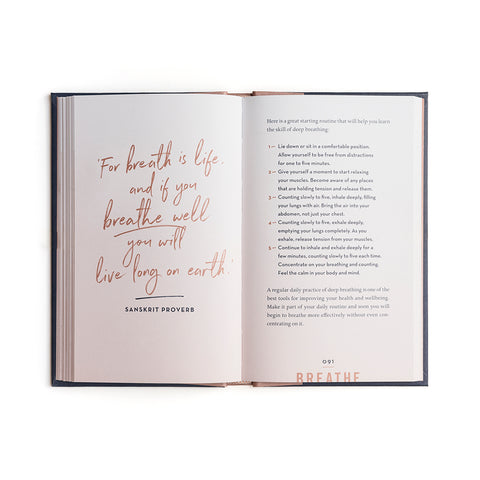 'For breath is life,
and if you
breathe well
you will
live long on earth.'
SANSKRIT PROVERB
Here is a great starting routine that will help you learn
the skill of deep breathing:
1— Lie down or sit in a comfortable position.
Allow yourself to be free from distractions
for one to five minutes.
2— Give yourself a moment to start relaxing
your muscles. Become aware of any places
that are holding tension and release them.
3— Counting slowly to five, inhale deeply, filling
your lungs with air. Bring the air into your
abdomen, not just your chest.
4— Counting slowly to five, exhale deeply,
emptying your lungs completely. As you
exhale, release tension from your muscles.
5— Continue to inhale and exhale deeply for a
few minutes, counting slowly to five each time.
Concentrate on your breathing and counting.
Feel the calm in your body and mind.
A regular daily practice of deep breathing is one of the
best tools for improving your health and wellbeing.
Make it part of your daily routine and soon you will
begin to breathe more effectively without even con-
centrating on it.
091
BREATHE